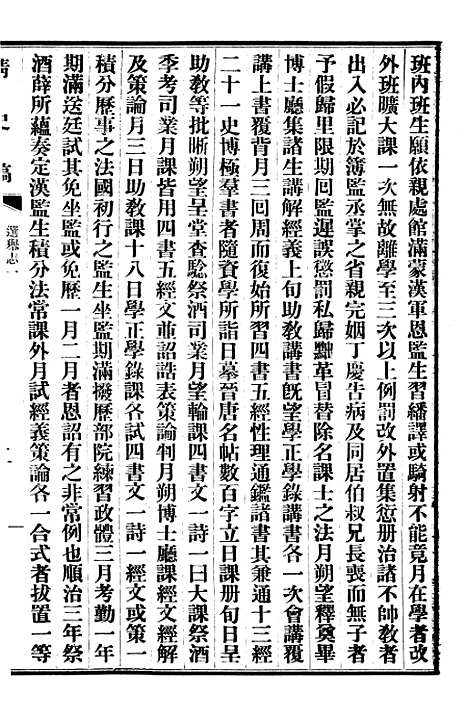 班內班生願依親處館滿蒙漢軍恩監生習繙譯或騎射不能竟月在學者改
外班曠大課一次無故離學至三次以上例罰改外置集愆册治諸不帥教者
出入必記於簿監丞掌之省親完姻丁慶告病及同居伯叔兄長喪而無子者
予假歸里限期回監遲誤懲罰私歸黜革冒替除名課士之法月朔望釋奠畢
博士廳集諸生講解經義上旬助教講書旣望學正學錄講書各一次會講覆
講上書覆背月三回周而復始所習四書五經性理通鑑諸書其兼通十三經
二十一史博極羣書者隨資學所詣日摹晉唐名帖數百字立日課册旬日呈
助教等批晰朔望呈堂查驗祭酒司業月望輪課四書文一詩一曰大課祭酒
季考司業月課皆用四書五經文並詔誥表策論判月朔博士廳課經文經解
及策論月三日助教課十八日學正學錄課各試四書文一詩一經文或策一
積分歷事之法國初行之監生坐監期滿撥歷部院練習政體三月考勤一年
期滿送廷試其免坐監或免歷一月二月者恩詔有之非常例也順治三年祭
酒薛所蘊奏定漢監生積分法常課外月試經義策論各一合式者拔置一等
清史稿
選舉志一